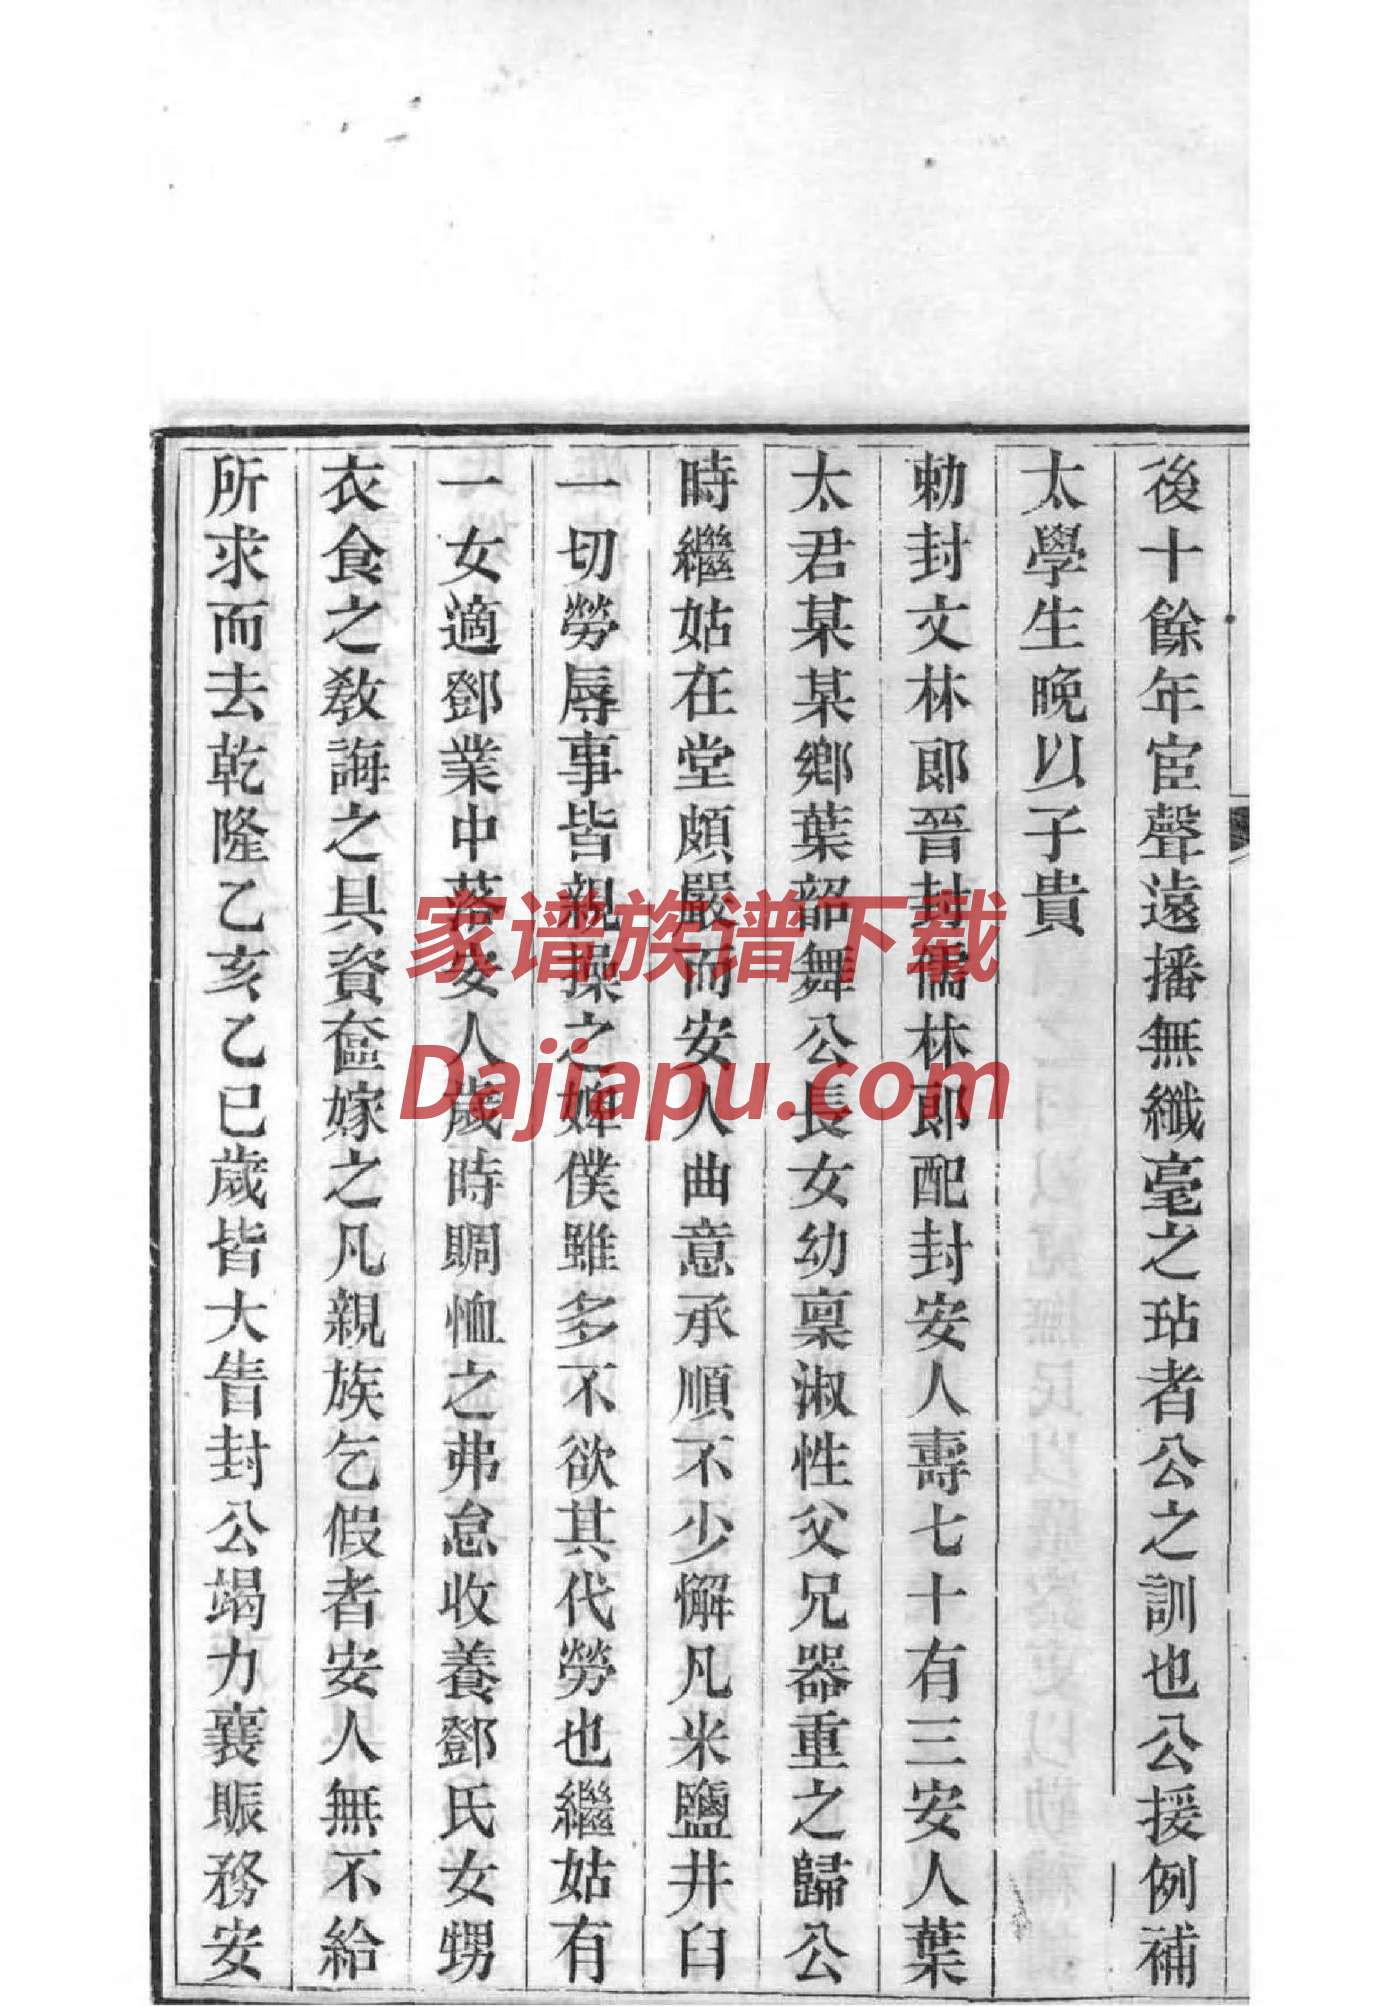 後十餘年宦聲遠播無纖毫之玷者公之訓也公援例補
太學生晚以子貴
勅封文林郎晉封儒林郎配封安人壽七十有三安人葉
太君某某鄉葉韶舞公長女幼稟淑性父兄器重之歸公
時繼姑在堂頗嚴而安人曲意承順不少懈凡米鹽井臼
一切勞辱事皆親操之婢僕雖多不欲其代勞也繼姑有
一女適鄧業中落安人歲時賙恤之弗怠收養鄧氏女甥
衣食之敎誨之具資奩嫁之凡親族乞假者安人無不給
所求而去乾隆乙亥乙巳歲皆大眚封公竭力襄賑務安
家谱族谱下载
Dajiapu.com